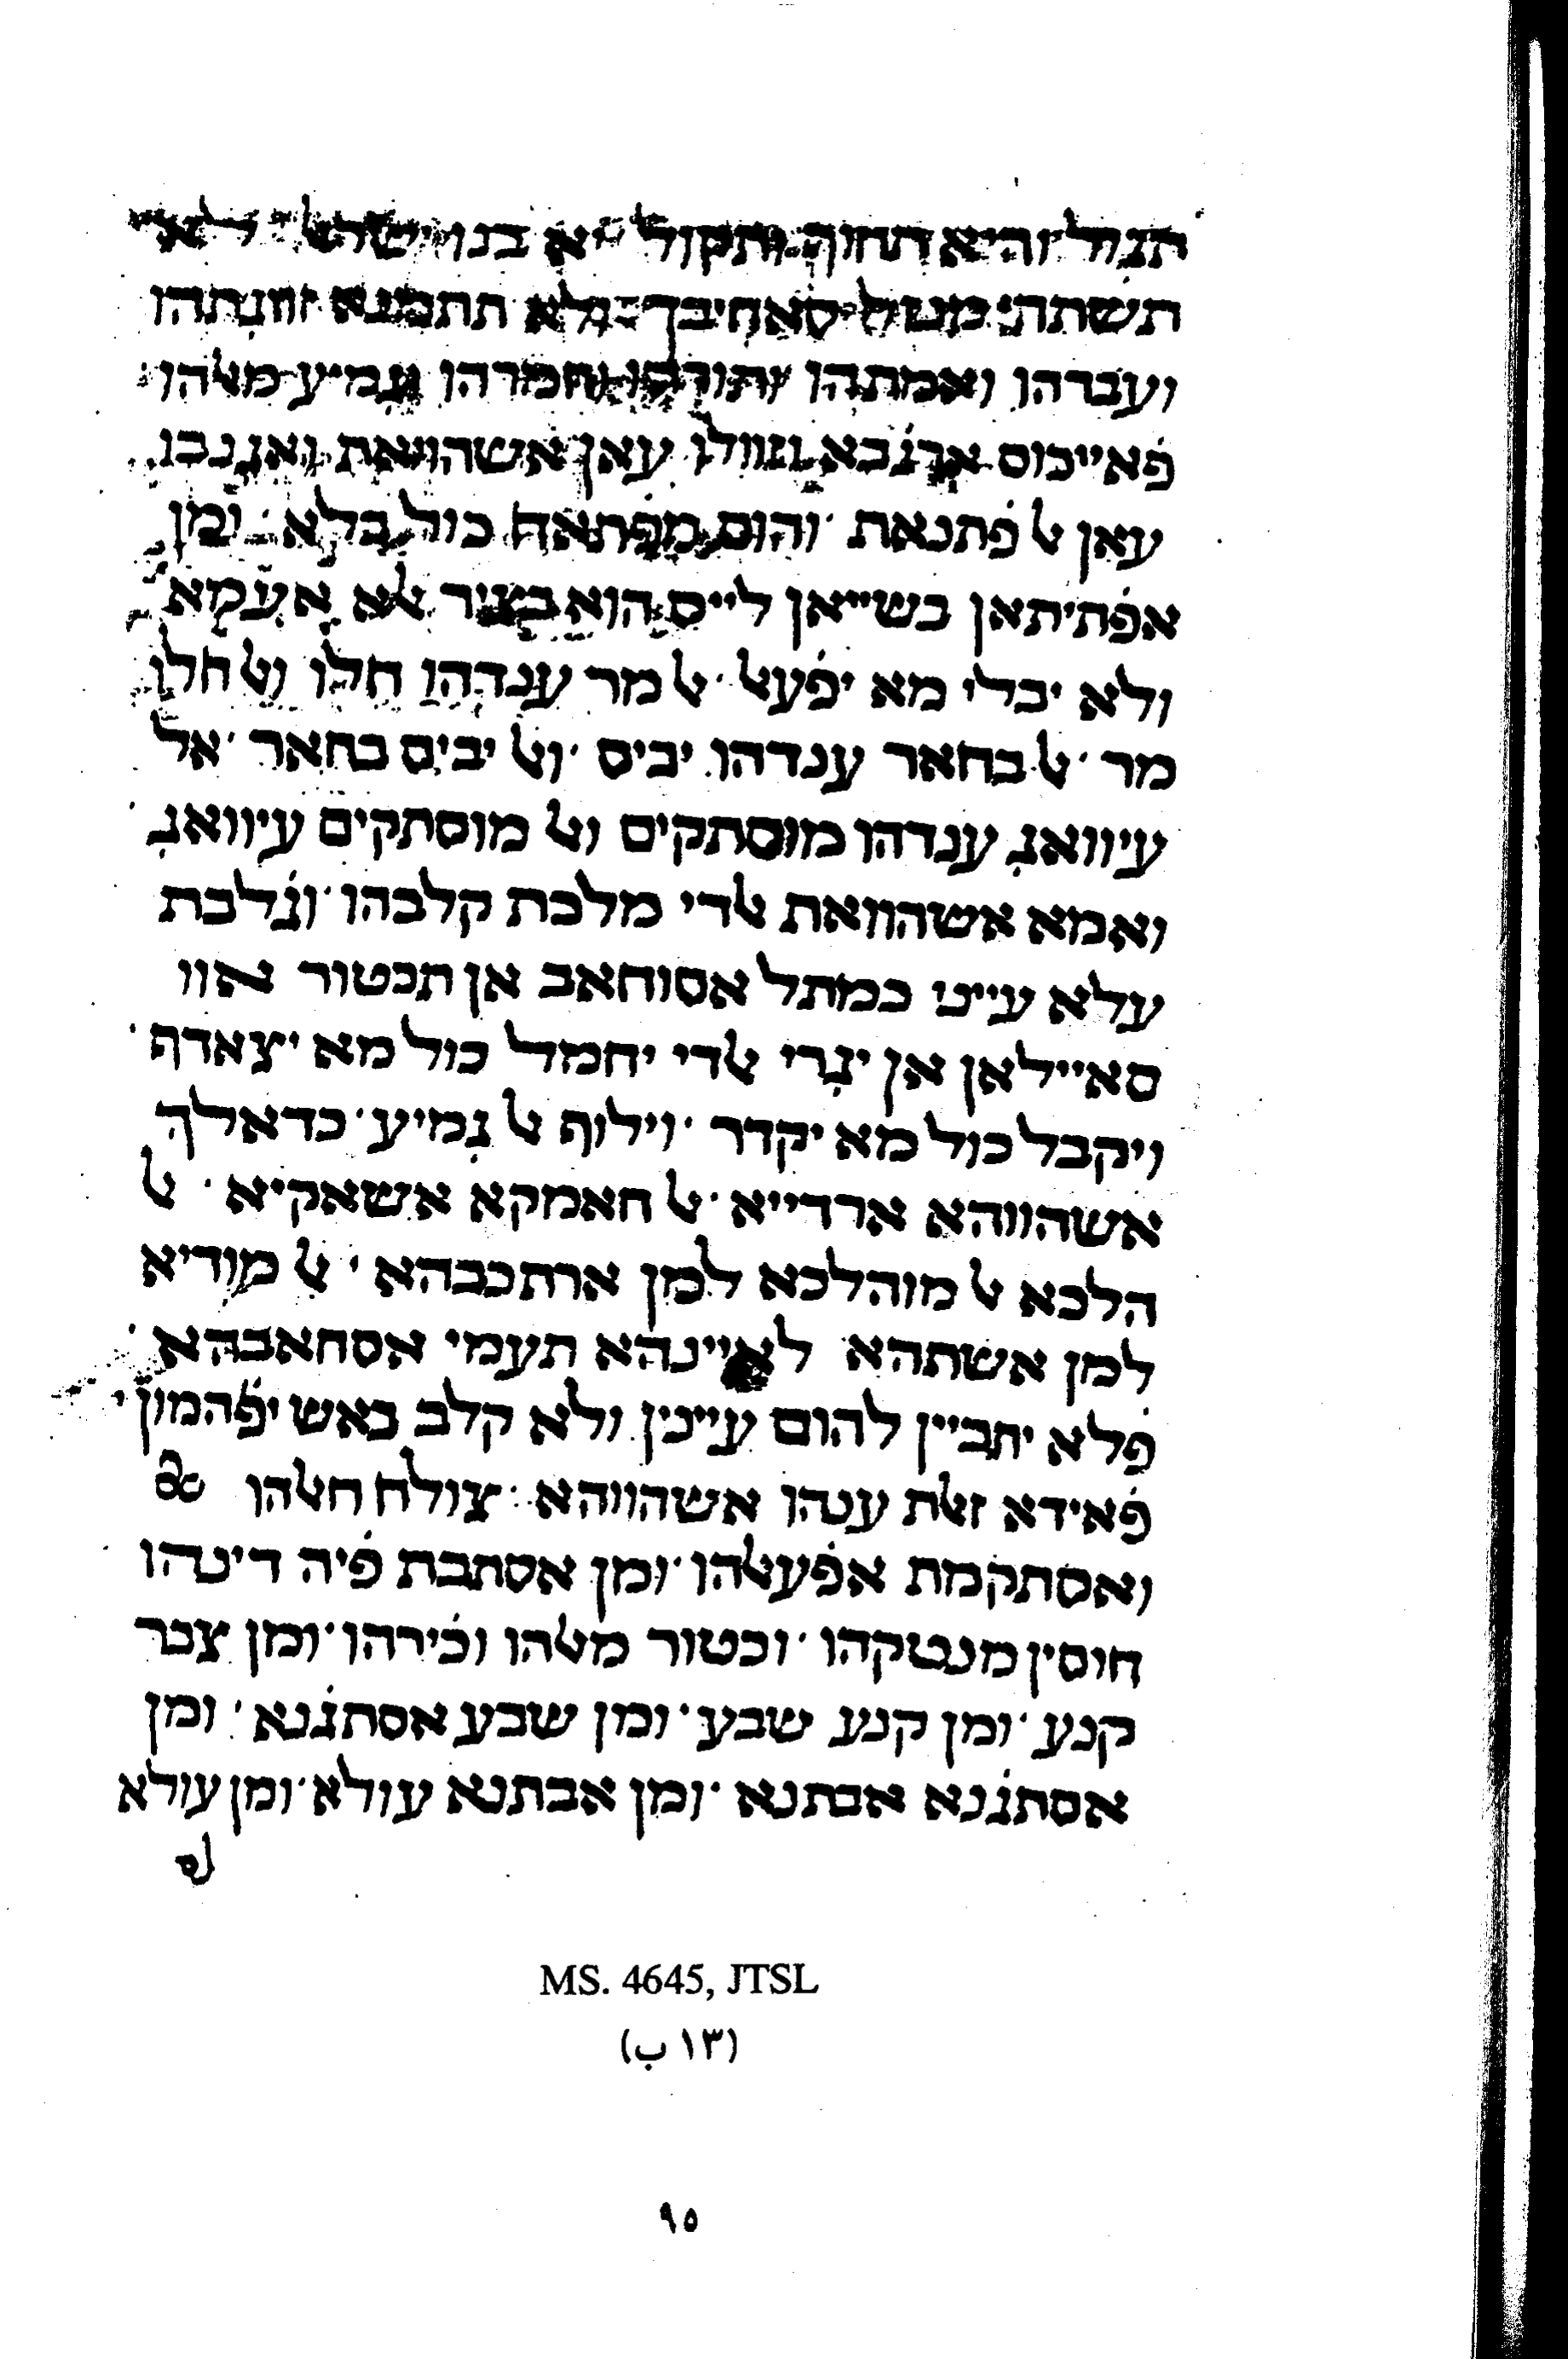 תגול והיא תחוף ותקול יא בנו ישראﭏ לא
תשתהי מﭏ סאחיבך ולא תתמנא זווגתהו
ועבדהו ואמתהו ותורהו וחמרהו וגמיע מﭏהו
פׄאייכוס ארגׄבא וזוולו עאן אשהוואת ואגנבו
עאן ﭏ פׄתנאת ׳ והום מפׄתאח כול בלא ׳ ומן
אפׄתיתאן בשייאן לייס הוא בציר ﭏא אעמא
ולא יבלי מא יפׄעﭏ ׳ ﭏ מר ענדהו חלו וﭏ חלו
מר ׳ ﭏ בחאר ענדהו יביס ׳ וﭏ יביס בחאר ׳ אל
עיוואג ענדהו מוסתקים וﭏ מוסתקים עיוואג
ואמא אשהוואת ﭏדי מלכת קלבהו ׳ וגׄלבת
עלא עייניו כמתל אסוחאב אן תכטור אוו
סאיילאן אן יגרי ﭏדי יחמל כול מא יצאדף ׳
ויקבל כול מא יקדר ׳ וילוף ﭏ גמיע ׳ כדאלך
אשהווהא ארדייא ׳ ﭏ חאמקא אשאקיא ׳ ﭏ
הלכא ﭏ מוהלכא למן ארתכבהא ׳ ﭏ מודיא
למן אשתהא לאיינהא תעמי אסחאבהא ׳
פׄלא יתביין להום עיינין ולא קלב באש יפׄהמון ׳
פׄאידא זﭏת ענהו אשהווהא ׳ צולח חﭏהו
ואסתקמת אפׄעﭏהו ׳ ומן אסתבת פׄיה דינהו
חוסין מנטקהו ׳ וכטור מﭏהו וכׄירהו ׳ ומן צבר
קנע ׳ ומן קנע שבע ׳ ומן שבע אסתגׄנא ׳ ומן
אסתגׄנא אבתנא ׳ ומן אבתנא עולא ׳ ומן עולא
MS. 4645, JTSL
(١٣ ب)
٩٥